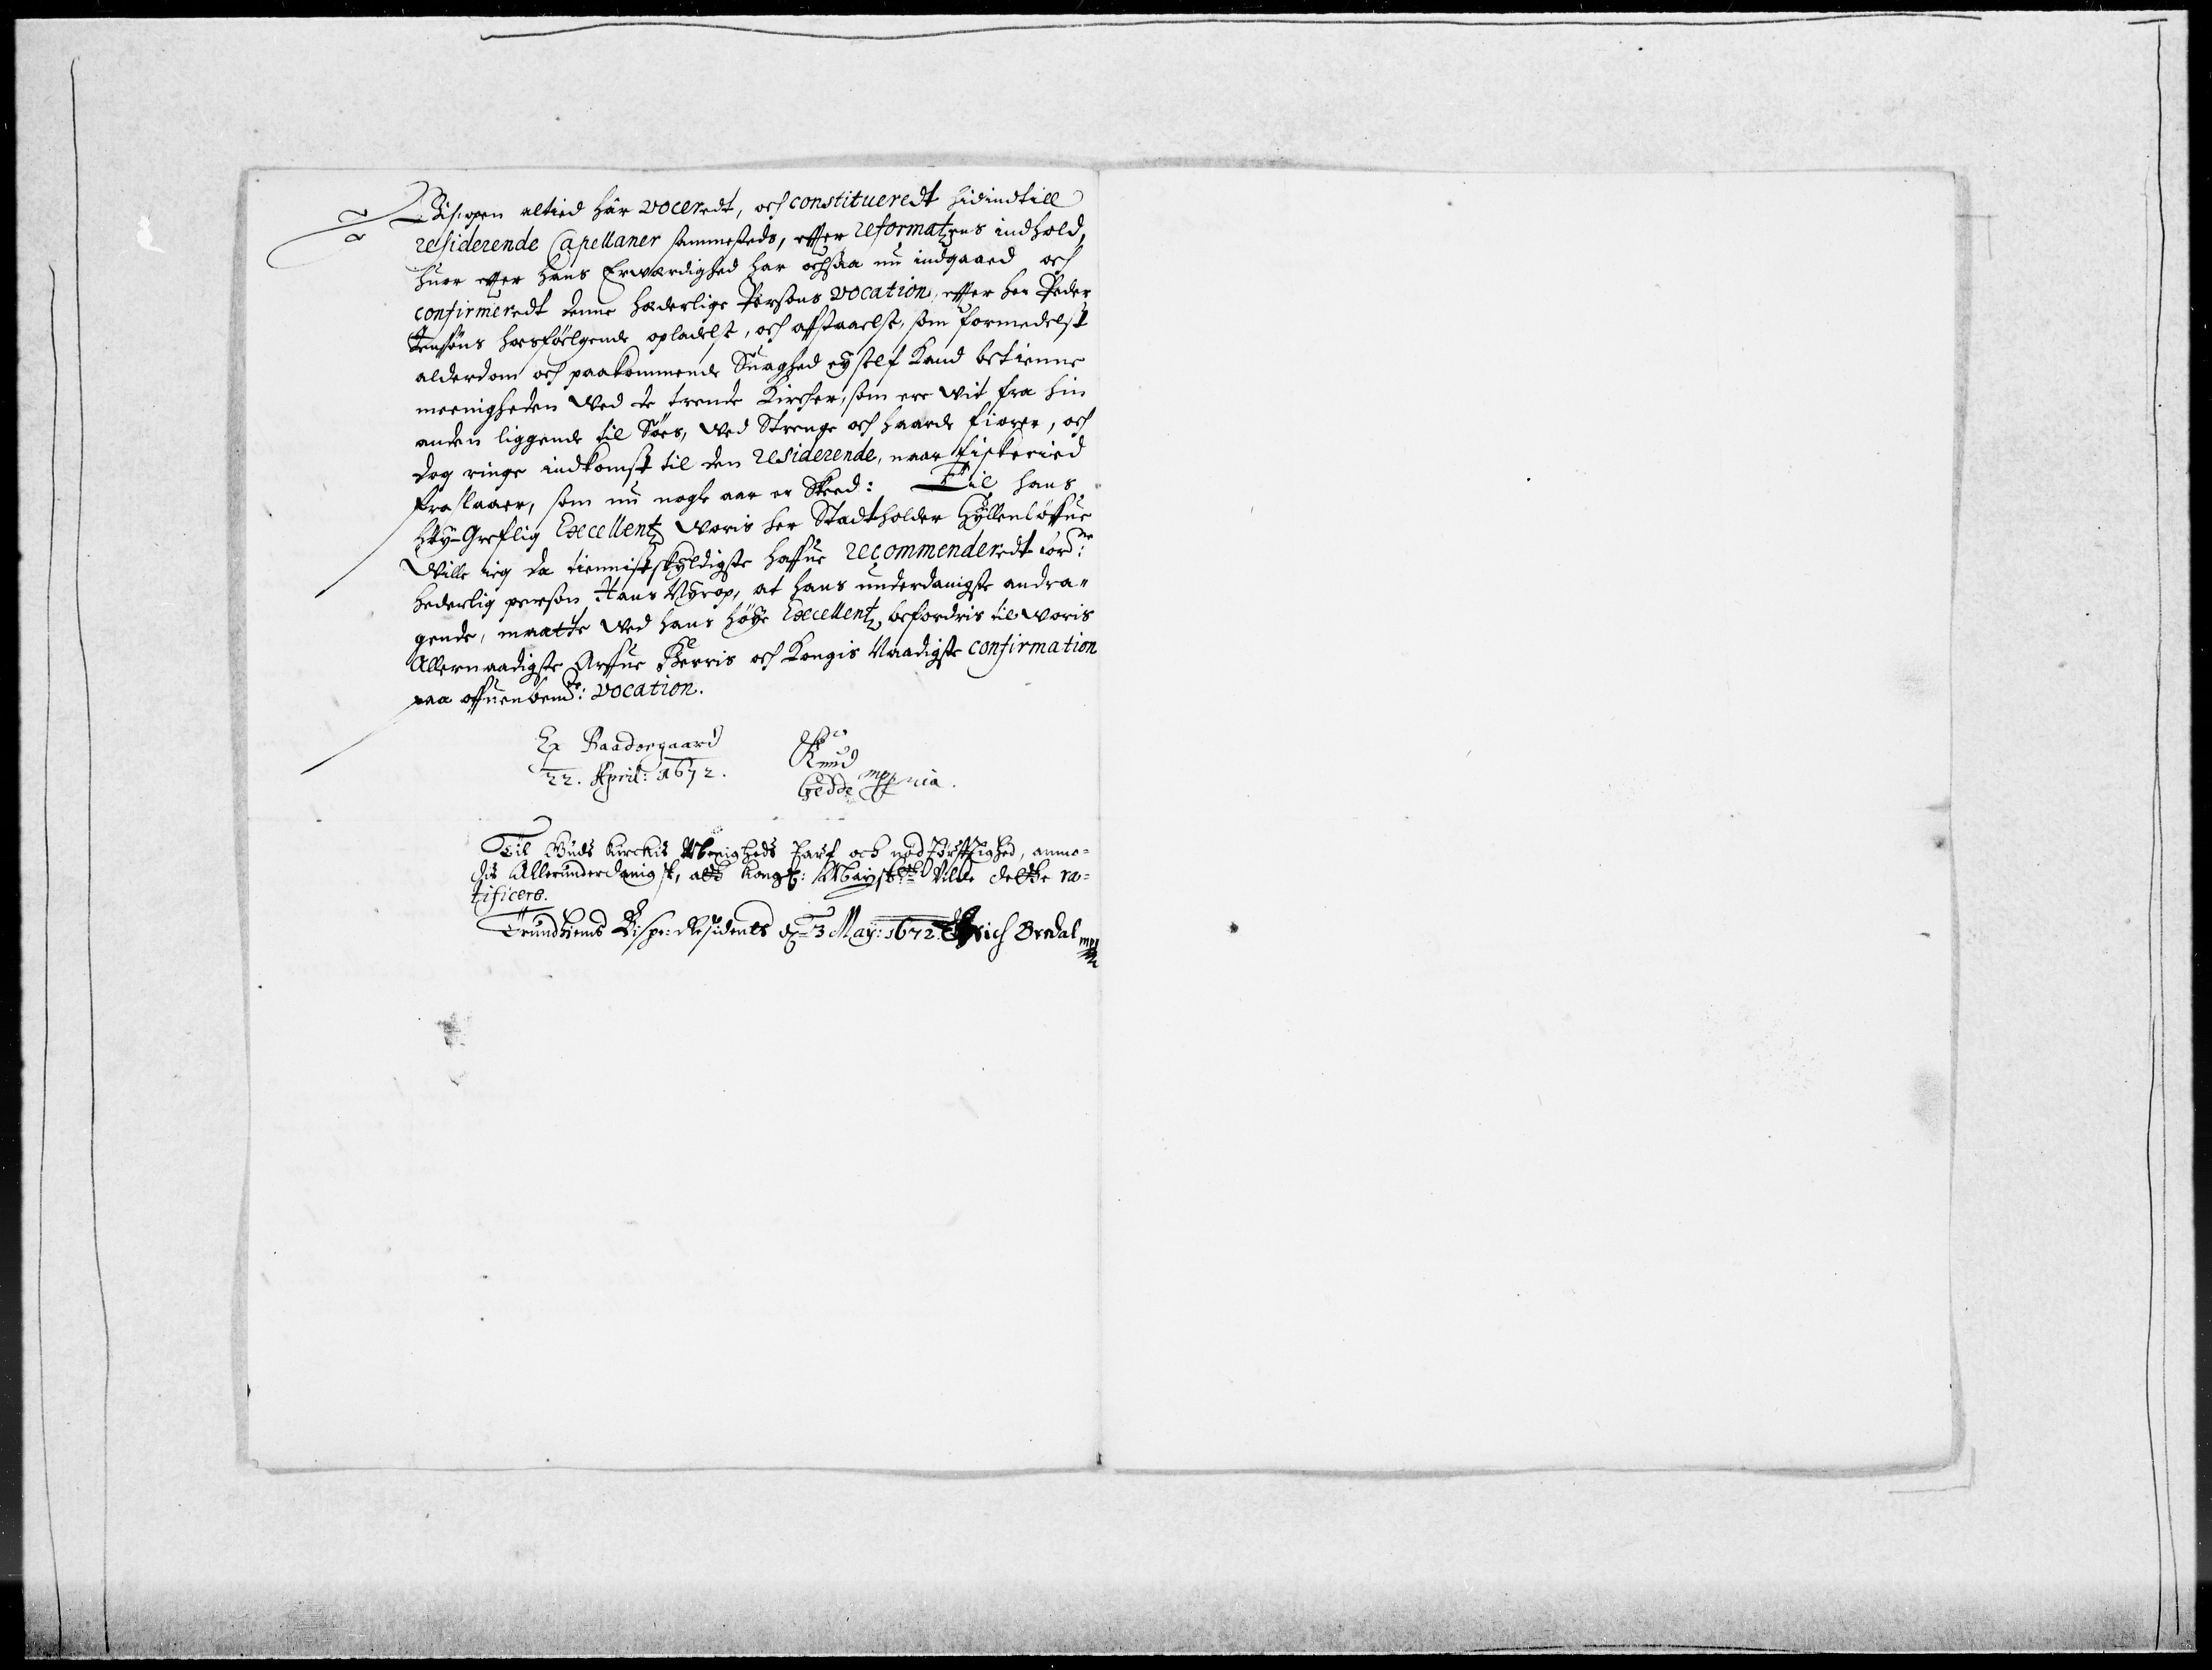 Bispen altied hâr voceredt, och constitueredt hidindtill
residerende Capellaner sammesteds, effter reformatzens indhold,
huor effter hans Erværdighed har ochsaa nu indgaaed och
confirmeredt denne hæderlige Persons vocation, effter her Peder
Jenssøns hosföelgende opladelse, och affstaaelse, som formedelst
alderdom och paakommende Suaghed ey self Kand betienne
meenigheden ved de trende Kircher, som ere vit fra hin
anden liggende til Söes, ved Strenge och haarde fiorer, och
dog ringe indkomst til den residerende, naar fiskeried
fraslaaer, som nu nogle aar er Skeed: Til hans
Höy-Grefflig Excellentz voris her Stadtholder Gyllenløffue
Ville ieg da tiennistskyldigste haffue recommenderedt ford:ne
hederlig person Hans Nyrop, at hans underdanigste andra-
gende, maatte ved hans høye Excellentz befordris til voris
Allernaadigste Arffue Herris och Kongis Naadigste confirmation
paa offuenbem:te vocation.
Ex Baadsgaard
22. April: 1672.
Knud
Gedde mppria.
Til Guds Kirckis Menigheds Tarf och nødtørfftighed, anmo-
dis Allerunderdanigst, att Kongl: Mayst:tt Vilde dette ra-
tificere.
Trundhiems Bispe-Residents d. 3 May: 1672. Erich Bredal mpp